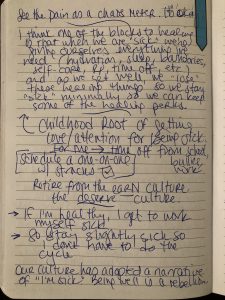 See the pain as a chaos meter.
I think one of the blocks to healing
is that when we are "sick" we're
giving ourselves everything we
need (hydration, sleep, boundaries,
self-care, RX, time off, etc.)
and as we get well we "lose"
these healing things so we stay
"sick" minimally so we can keep
some of the healing perks.
CHILDHOOD ROOT of getting
love/attention for being sick.
time off from school,
bullies,
work
Schedule a one-on-one
w/
Retire from the earn culture
the deserve culture.
→ If I'm healthy, I get to work
myself sick
→ So stay slightly sick so
I don't have to do the
cycle
Our culture has adopted a narrative
of "I'm sick." Being well is a rebellion